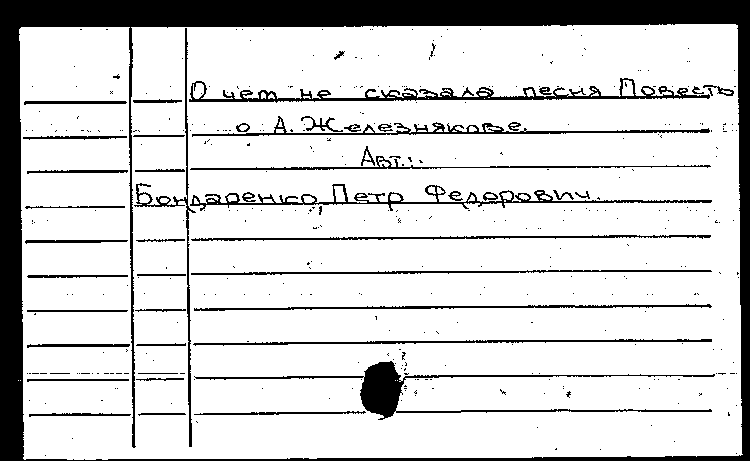 О чем не сказала песня Повесть
о А. Железнякове.
Авт.:
Бондаренко, Петр Федорович.